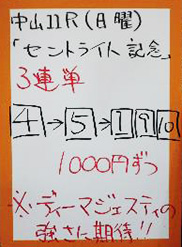 中山11R(日曜)
「セントライト記念」
3連単
4→5→1 9 10
1000円ずつ
※ディーマジェスティの
強さに期待!!